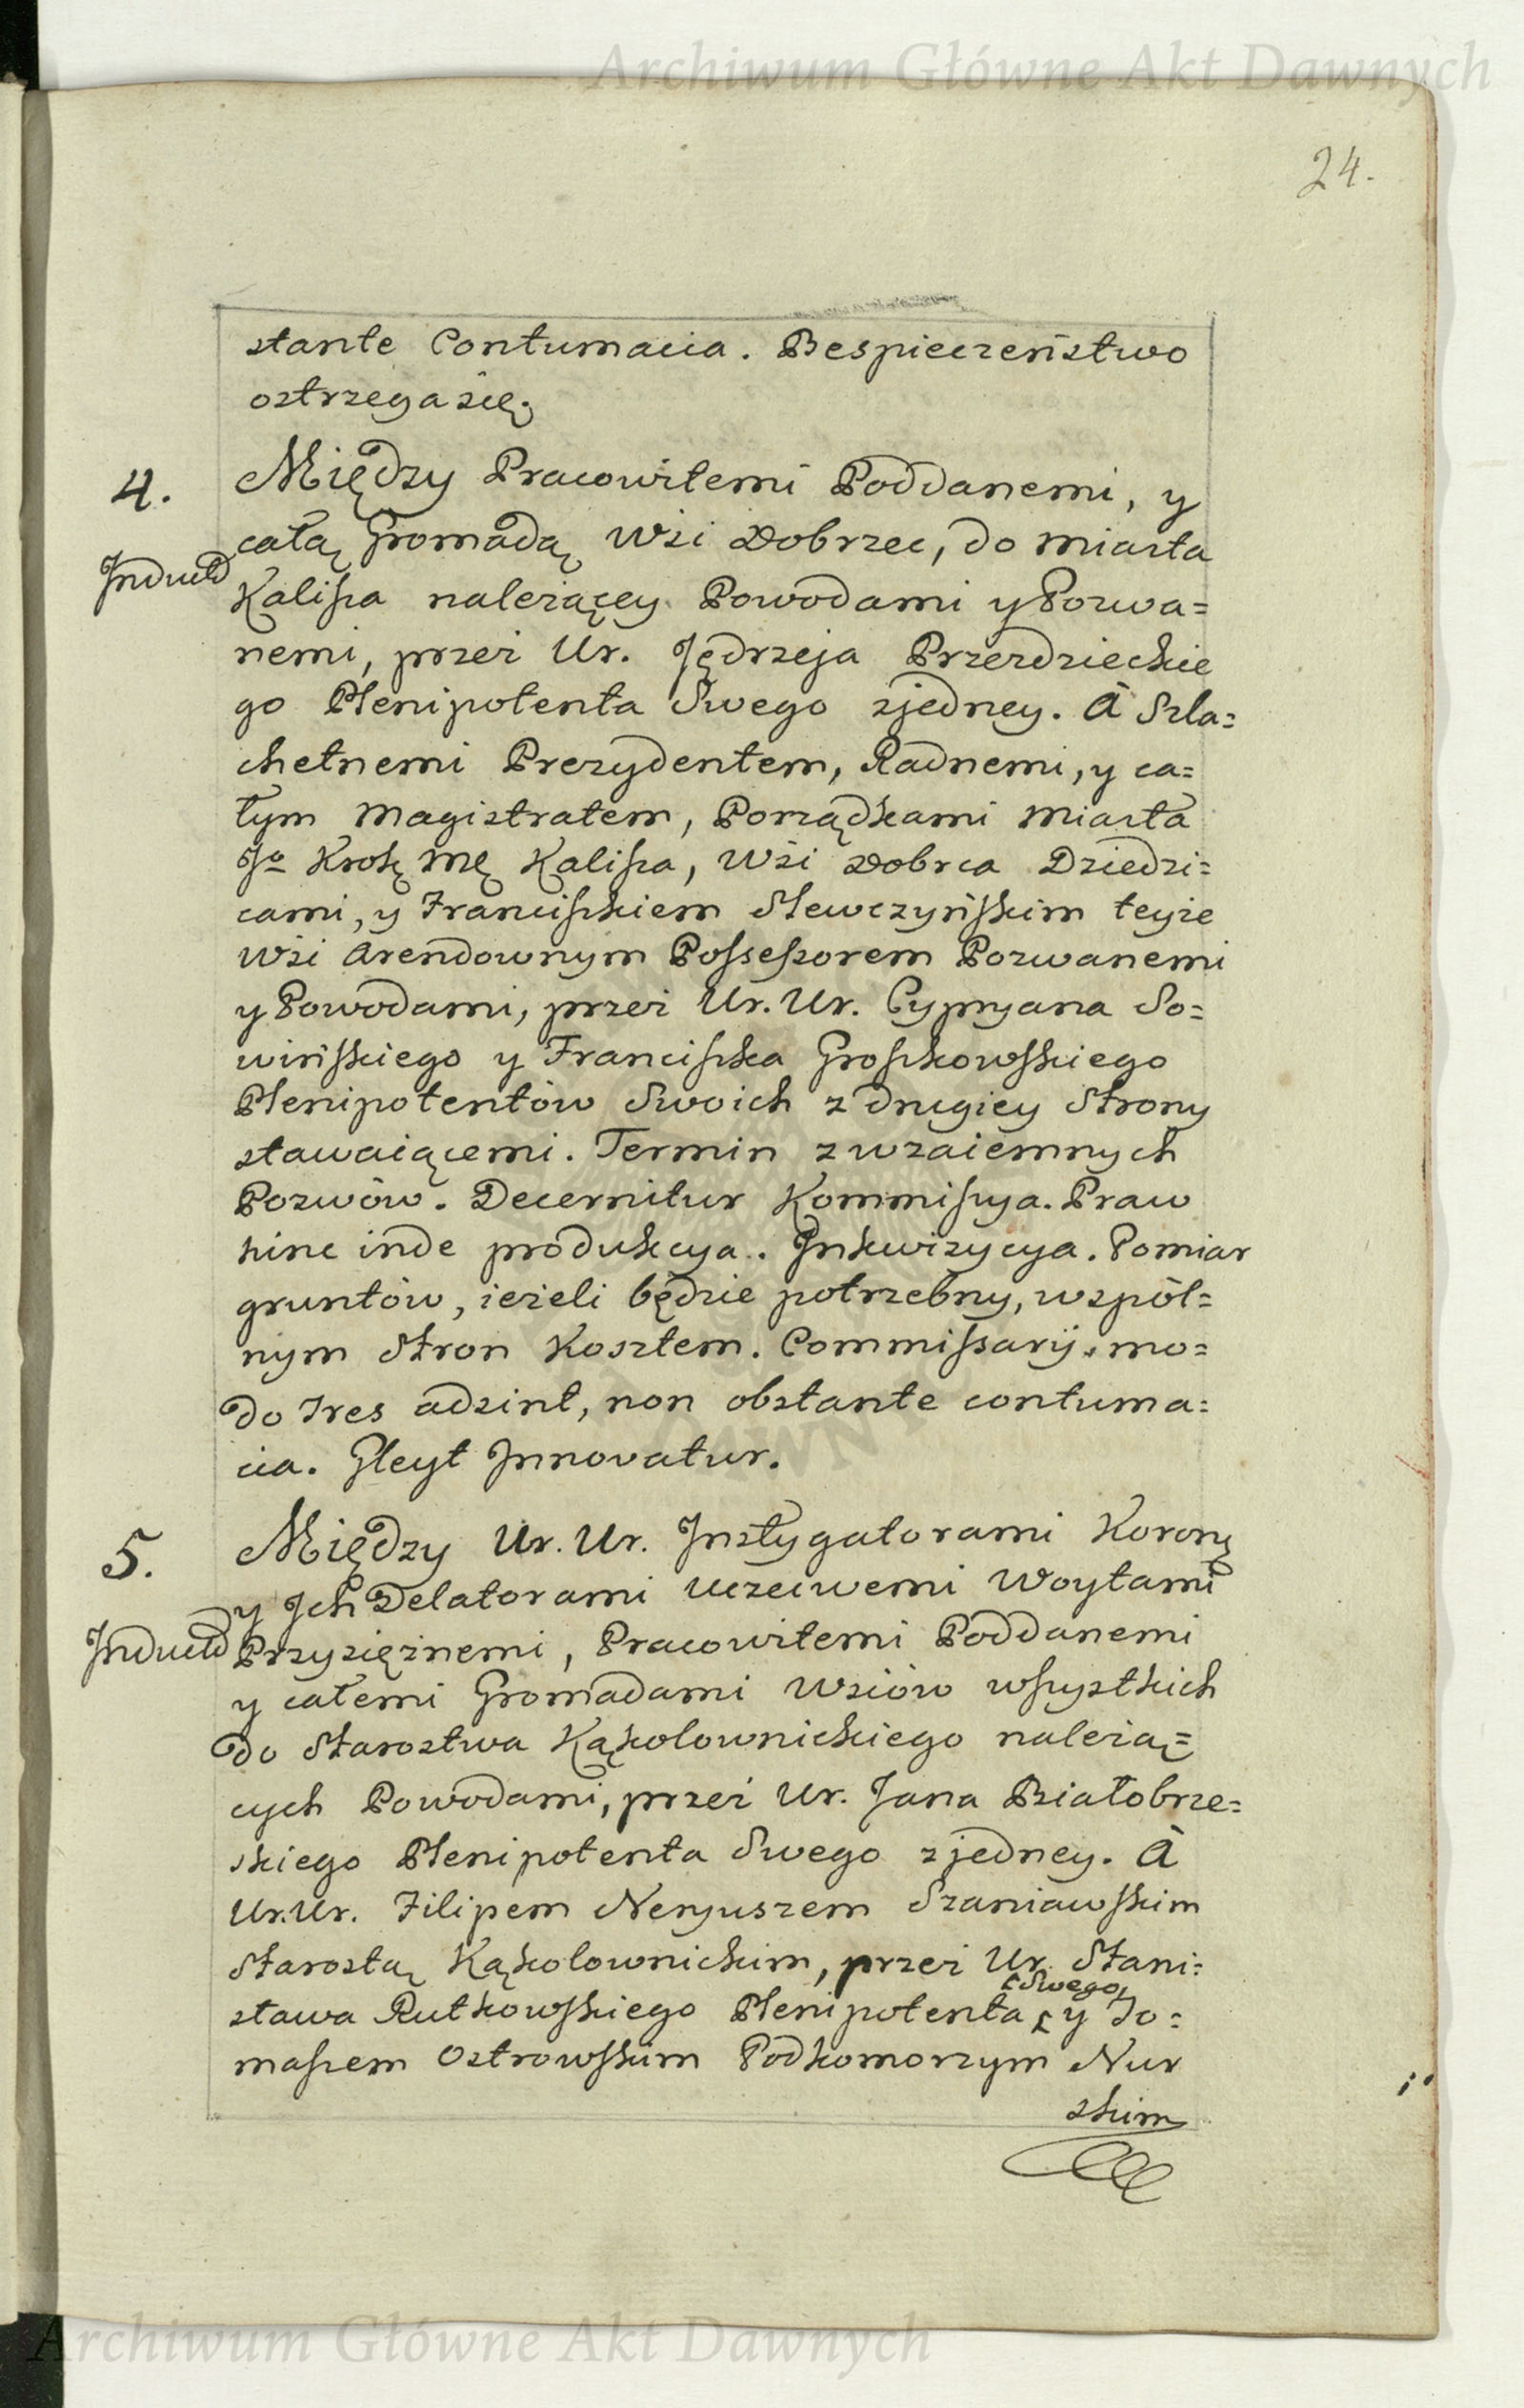 Archiwum Główne Akt Dawnych
24.
stante Contumacia. Bespieczeństwo
ostrzega się.
4. Między Pracowitemi Poddanemi, y
całą Gromadą Wsi Dobrzec, do miasta
Induct
Kalisza należącey Powodami y Pozwa=
nemi, przez Ur. Jędrzeja Przezdzieckie
go Plenipotenta Swego z jedney. A Szla=
chetnemi Prezydentem, Radnemi, y ca=
łym Magistratem, Porządkami Miasta
Jo Krolę Mę Kalisza, Wsi Dobrca Dziedzi=
cami, y Franciszkiem Slewczyńskim teyże
Wsi Arendownym Possessorem Pozwanemi
y Powodami, przez Ur. Ur. Cypryana So=
wińskiego y Franciszka Groszkowskiego
Plenipotentów Swoich z drugiey Strony
stawaiącemi. Termin z wzaiemnych
Pozwów. Decernitur Kommissya. Praw
hinc inde produkcya. Inkwizycya. Pomiar
gruntów, ieżeli będzie potrzebny, wspól=
nym Stron Kosztem. Commissarij, mo=
do Tres adsint, non obstante contuma=
cia. Gleyt Innovatur.
5. Między Ur. Ur. Instygatorami Korony
y Ich Delatorami Uczciwemi Woytami
Induct
Przysiężnemi, Pracowitemi Poddanemi
y całemi Gromadami Wsiów wszystkich
do Starostwa Kąkolownickiego należą=
cych Powodami, przez Ur. Jana Białobrze=
skiego Plenipotenta Swego z jedney. A
Ur. Ur. Filipem Neryuszem Szaniawskim
Starostą Kąkolownickim, przez Ur. Stani=
sława Rutkowskiego Plenipotenta Swego, y To=
maszem Ostrowskim Podkomorzym Nur
skim
Archiwum Główne Akt Dawnych